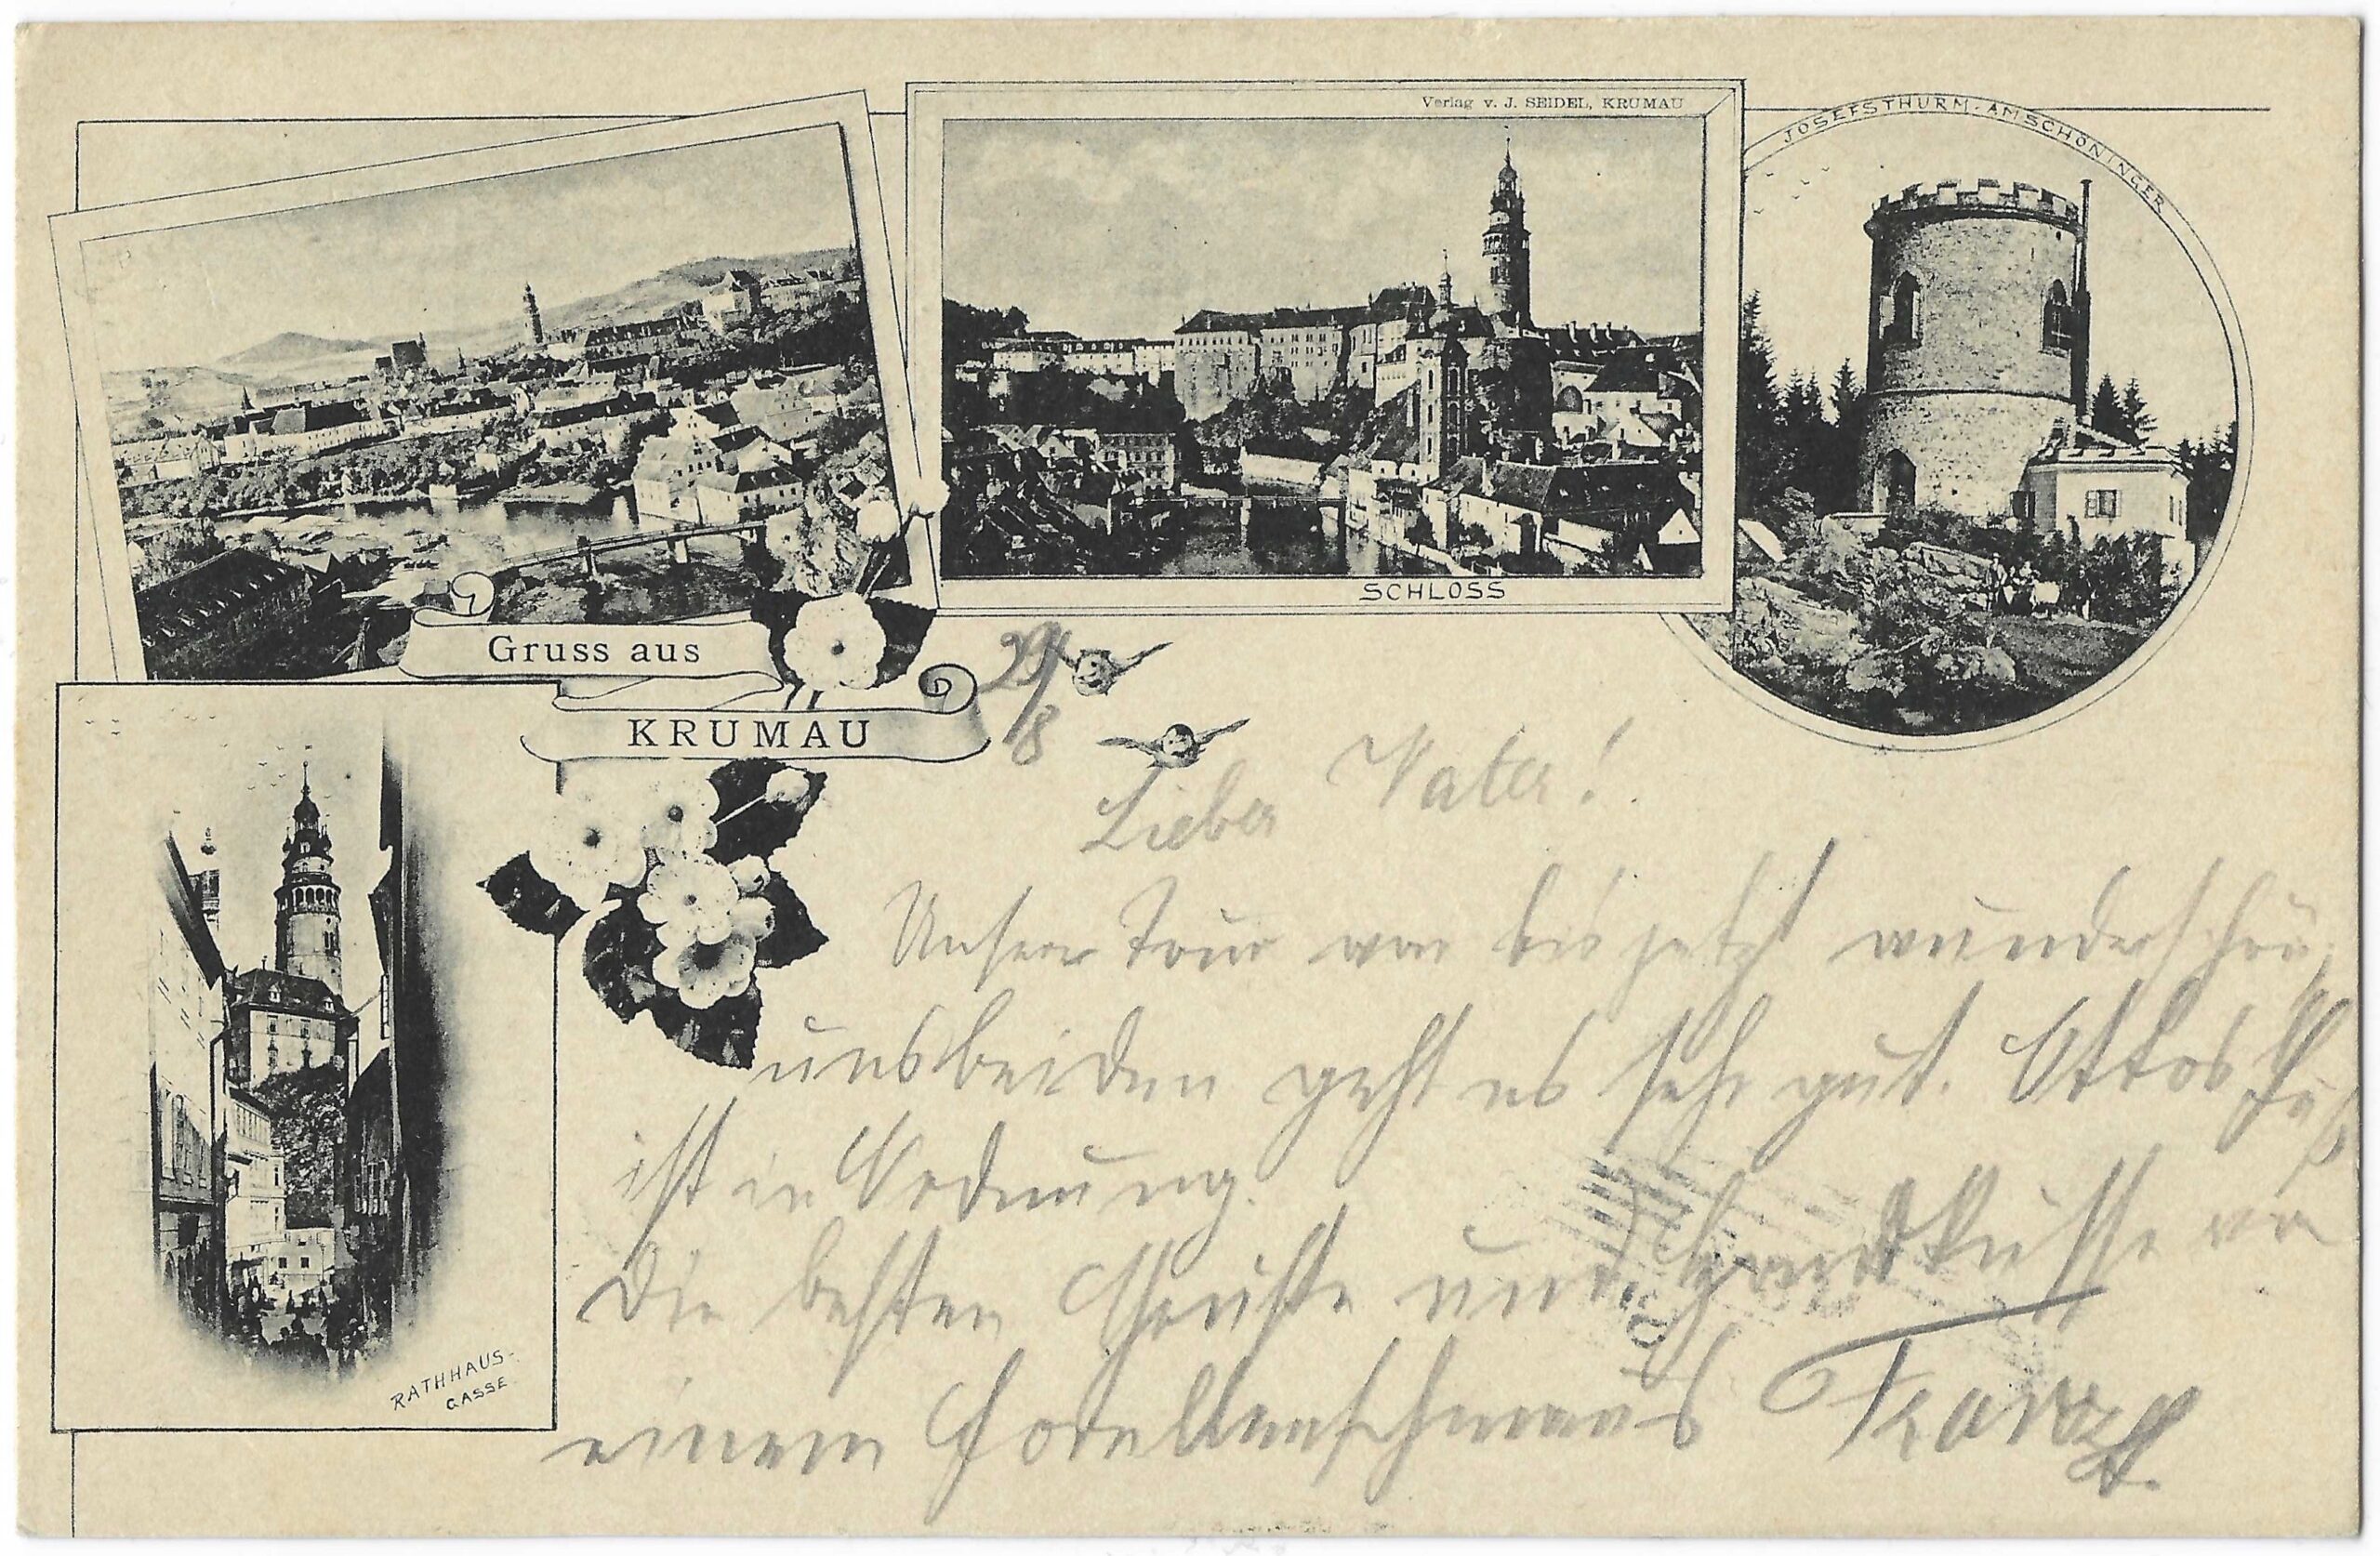 Verlag v. J. SEIDEL, KRUMAU
JOSEFSTHURM-AM SCHÖNINGER
SCHLOSS
Gruss aus
KRUMAU
RATHHAUS-
GASSE
29/8
Lieber Vater!
Unsere Tour war bis jetzt wunderschön,
uns beiden geht es sehr gut. Ottos Fuß
ist in Ordnung.
Die besten Grüße und Handküsse von
einem Forellenschmaus Franz